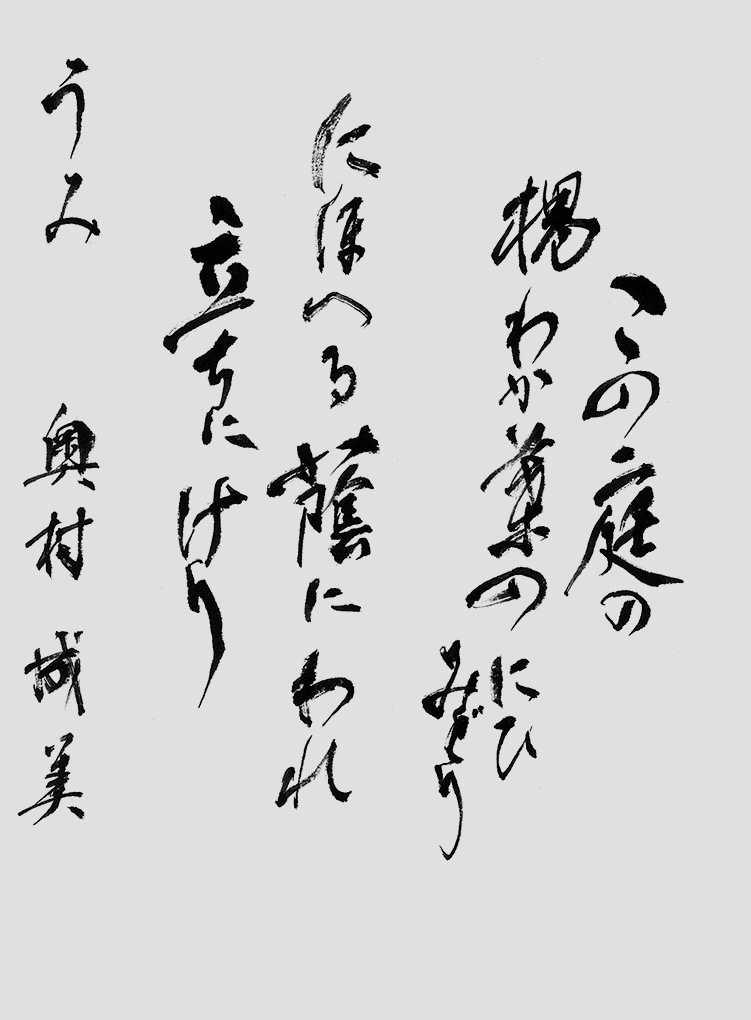 この庭の
槐わか葉の
にひ
みどり
にほへる蔭にわれ
立ちにけり
うみ 奥村城美